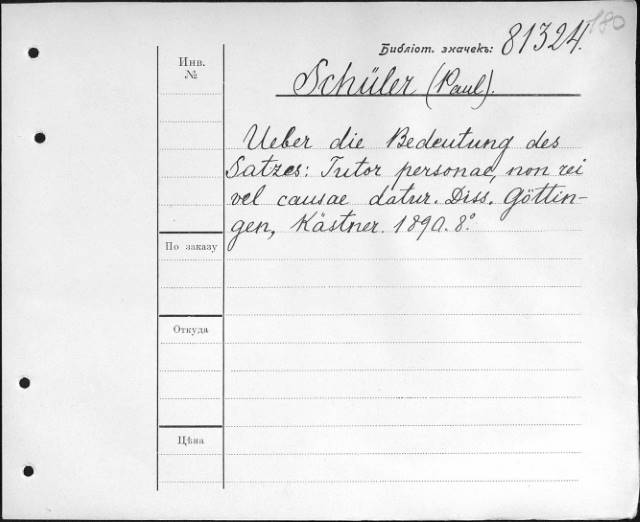 180
Библіот. значекъ: 81324.
Инв.
№
Schüler (Paul).
Ueber die Bedeutung des
Satzes: Tutor personae, non rei
vel causae datur. Diss. Göttin-
gen, Kästner. 1890. 8°.
По заказу
Откуда
Цѣна